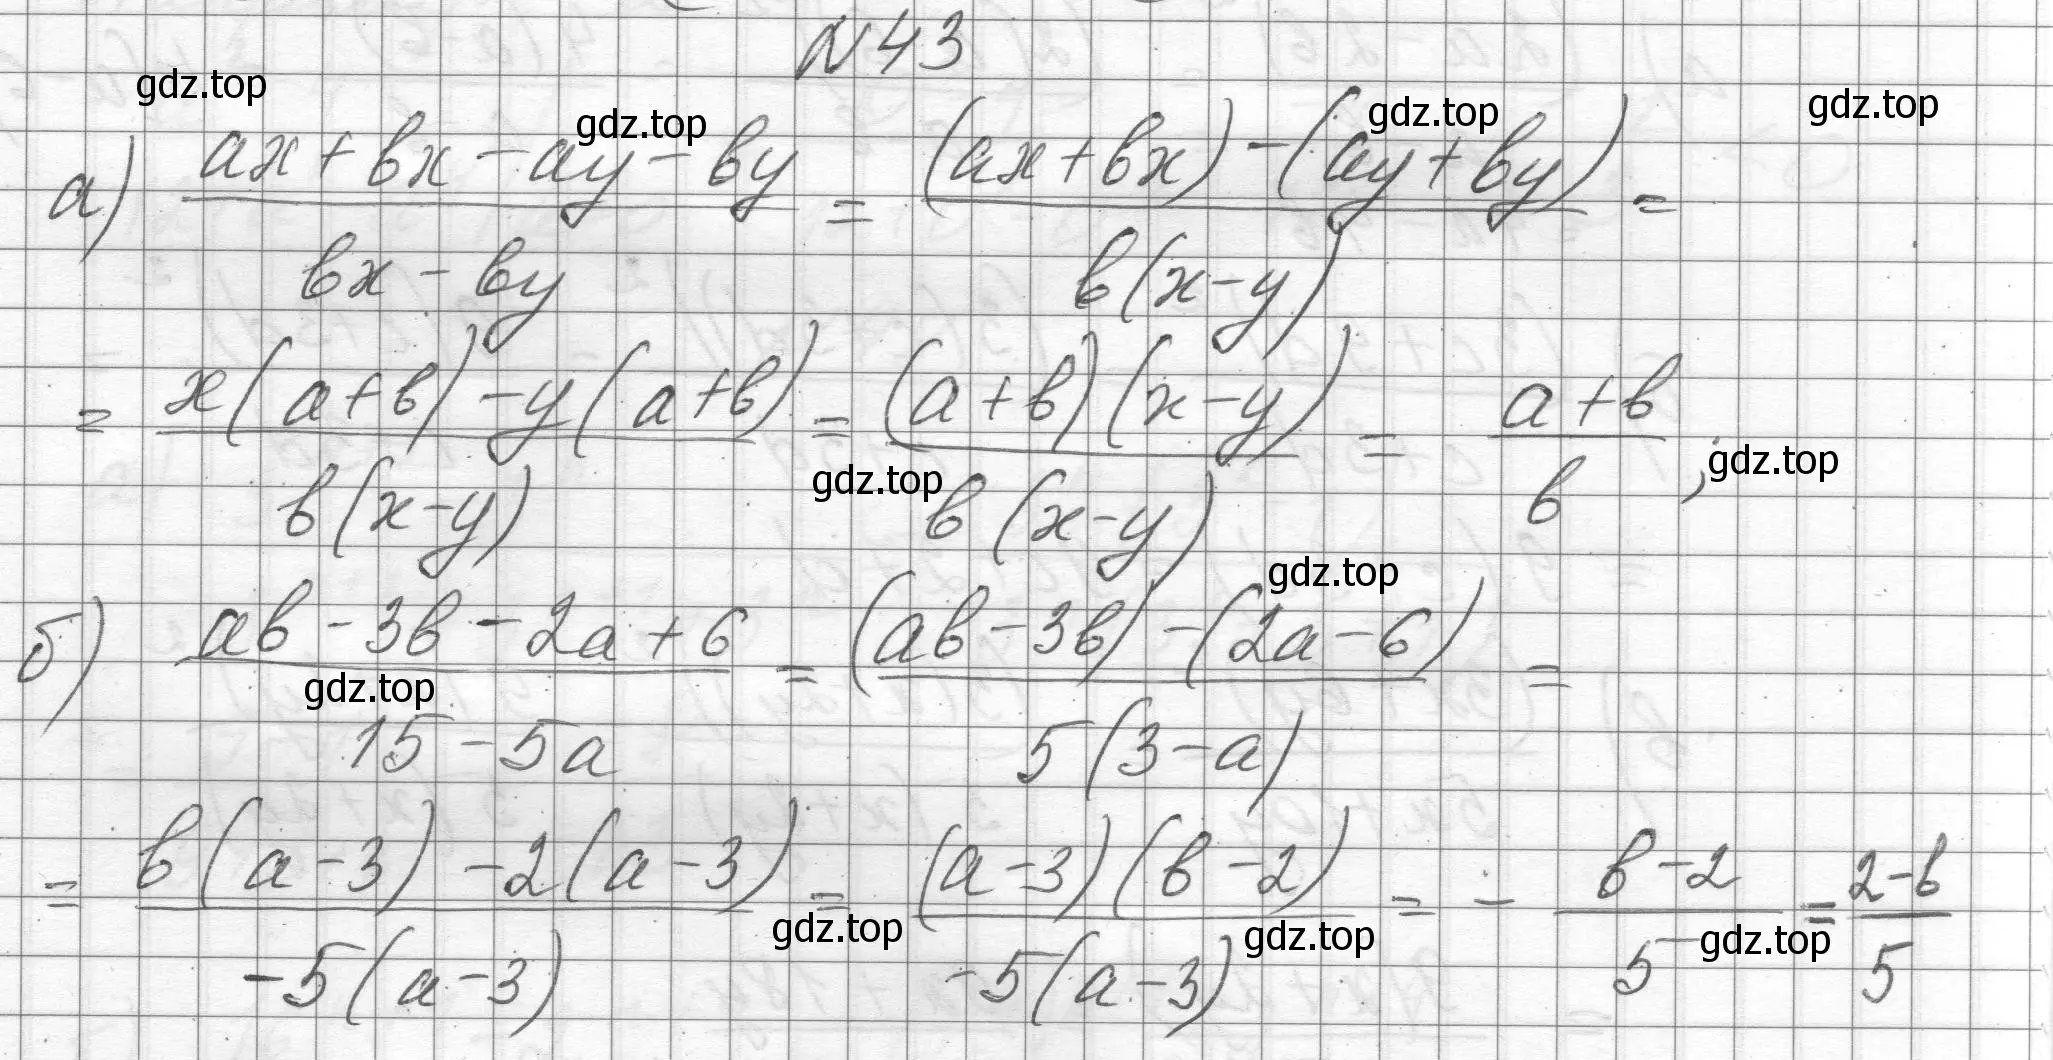 №43
а) (ax + bx - ay - by)/(bx - by) = ((ax + bx) - (ay + by))/(b(x - y)) =
= (x(a + b) - y(a + b))/(b(x - y)) = ((a + b)(x - y))/(b(x - y)) = (a + b)/b ;
б) (ab - 3b - 2a + 6)/(15 - 5a) = ((ab - 3b) - (2a - 6))/(5(3 - a)) =
= (b(a - 3) - 2(a - 3))/(-5(a - 3)) = ((a - 3)(b - 2))/(-5(a - 3)) = - (b - 2)/5 = (2 - b)/5
gdz.top
gdz.top
gdz.top
gdz.top
gdz.top
gdz.top
gdz.top
gdz.top
gdz.top
gdz.top
gdz.top